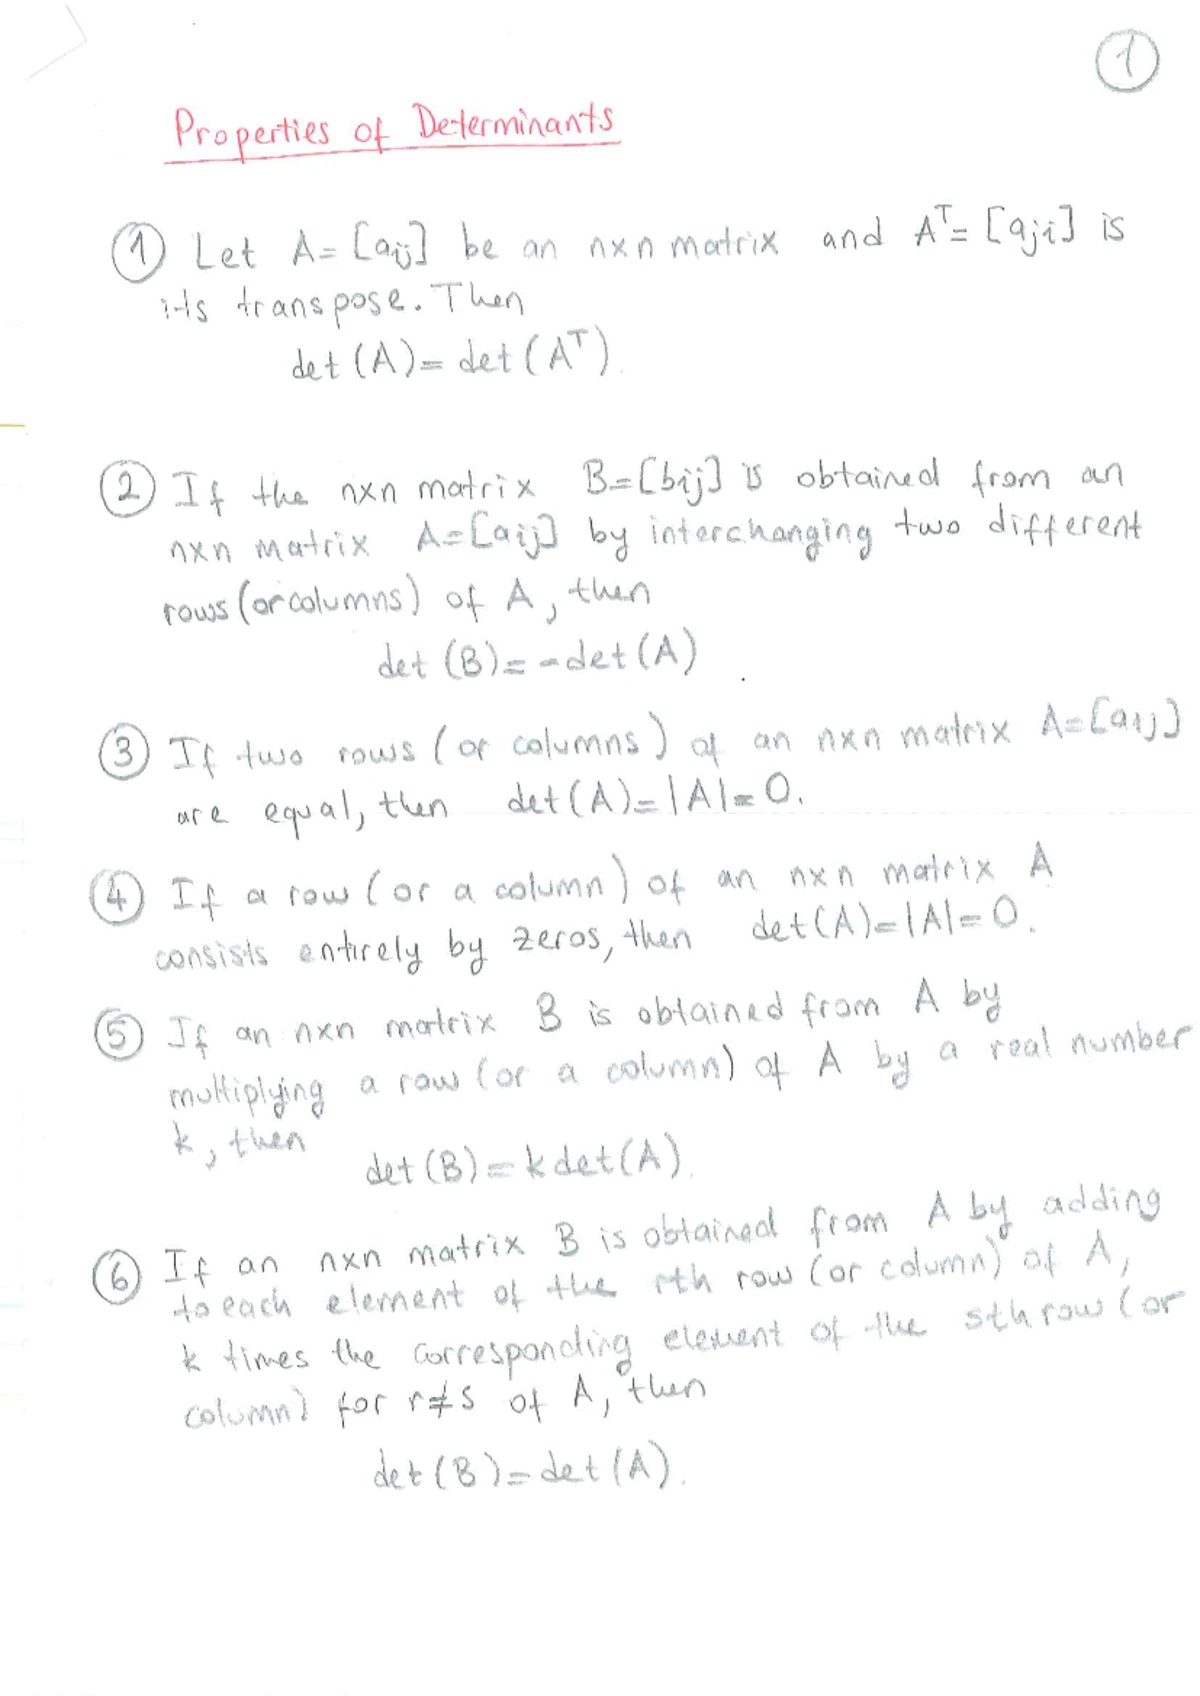 1
Properties of Determinants
1 Let A=[aij] be an nxn matrix and Aᵀ=[aji] is
its transpose. Then
det(A)=det(Aᵀ).
2 If the nxn matrix B=[bij] is obtained from an
nxn matrix A=[aij] by interchanging two different
rows (or columns) of A, then
det(B)=-det(A)
3 If two rows (or columns) of an nxn matrix A=[aij]
are equal, then det(A)=|A|=0.
4 If a row (or a column) of an nxn matrix A
consists entirely by zeros, then det(A)=|A|=0.
5 If an nxn matrix B is obtained from A by
multiplying a row (or a column) of A by a real number
k, then
det(B)=kdet(A).
6 If an nxn matrix B is obtained from A by adding
to each element of the rth row (or column) of A,
k times the corresponding element of the sth row (or
column) for r≠s of A, then
det(B)=det(A).